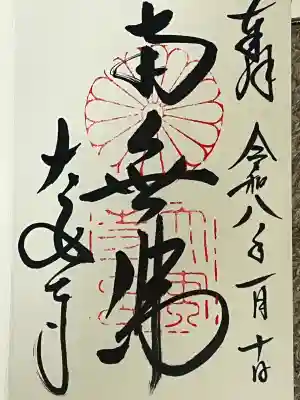 奉拝 令和八年一月十日
南無佛
大安寺